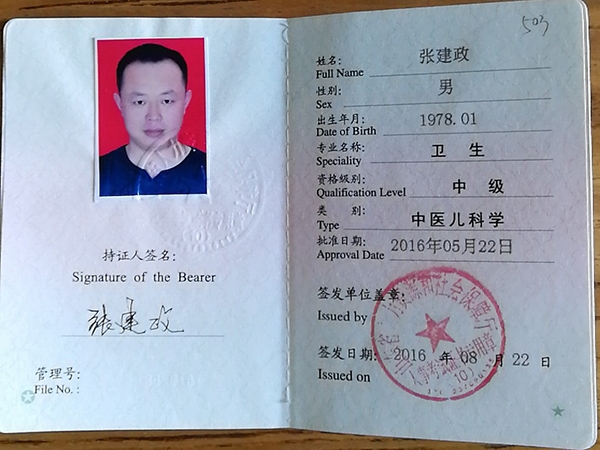 持证人签名:
Signature of the Bearer
张建政
管理号:
File No.:
503
姓名: 张建政
Full Name
性别: 男
Sex
出生年月: 1978.01
Date of Birth
专业名称: 卫生
Speciality
资格级别: 中级
Qualification Level
类别: 中医儿科学
Type
批准日期: 2016年05月22日
Approval Date
签发单位盖章:
Issued by
签发日期: 2016 年 08 月 22 日
Issued on